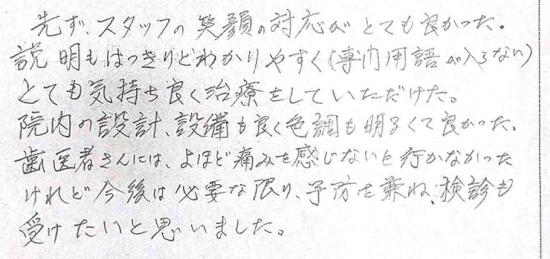 先ず、スタッフの笑顔の対応がとても良かった。
説明もはっきりとわかりやすく(専門用語が入らない)
とても気持ち良く治療をしていただけた。
院内の設計、設備も良く色調も明るくて良かった。
歯医者さんには、よほど痛みを感じないと行かなかった
けれど今後は必要な限り、予防を兼ね、検診も
受けたいと思いました。